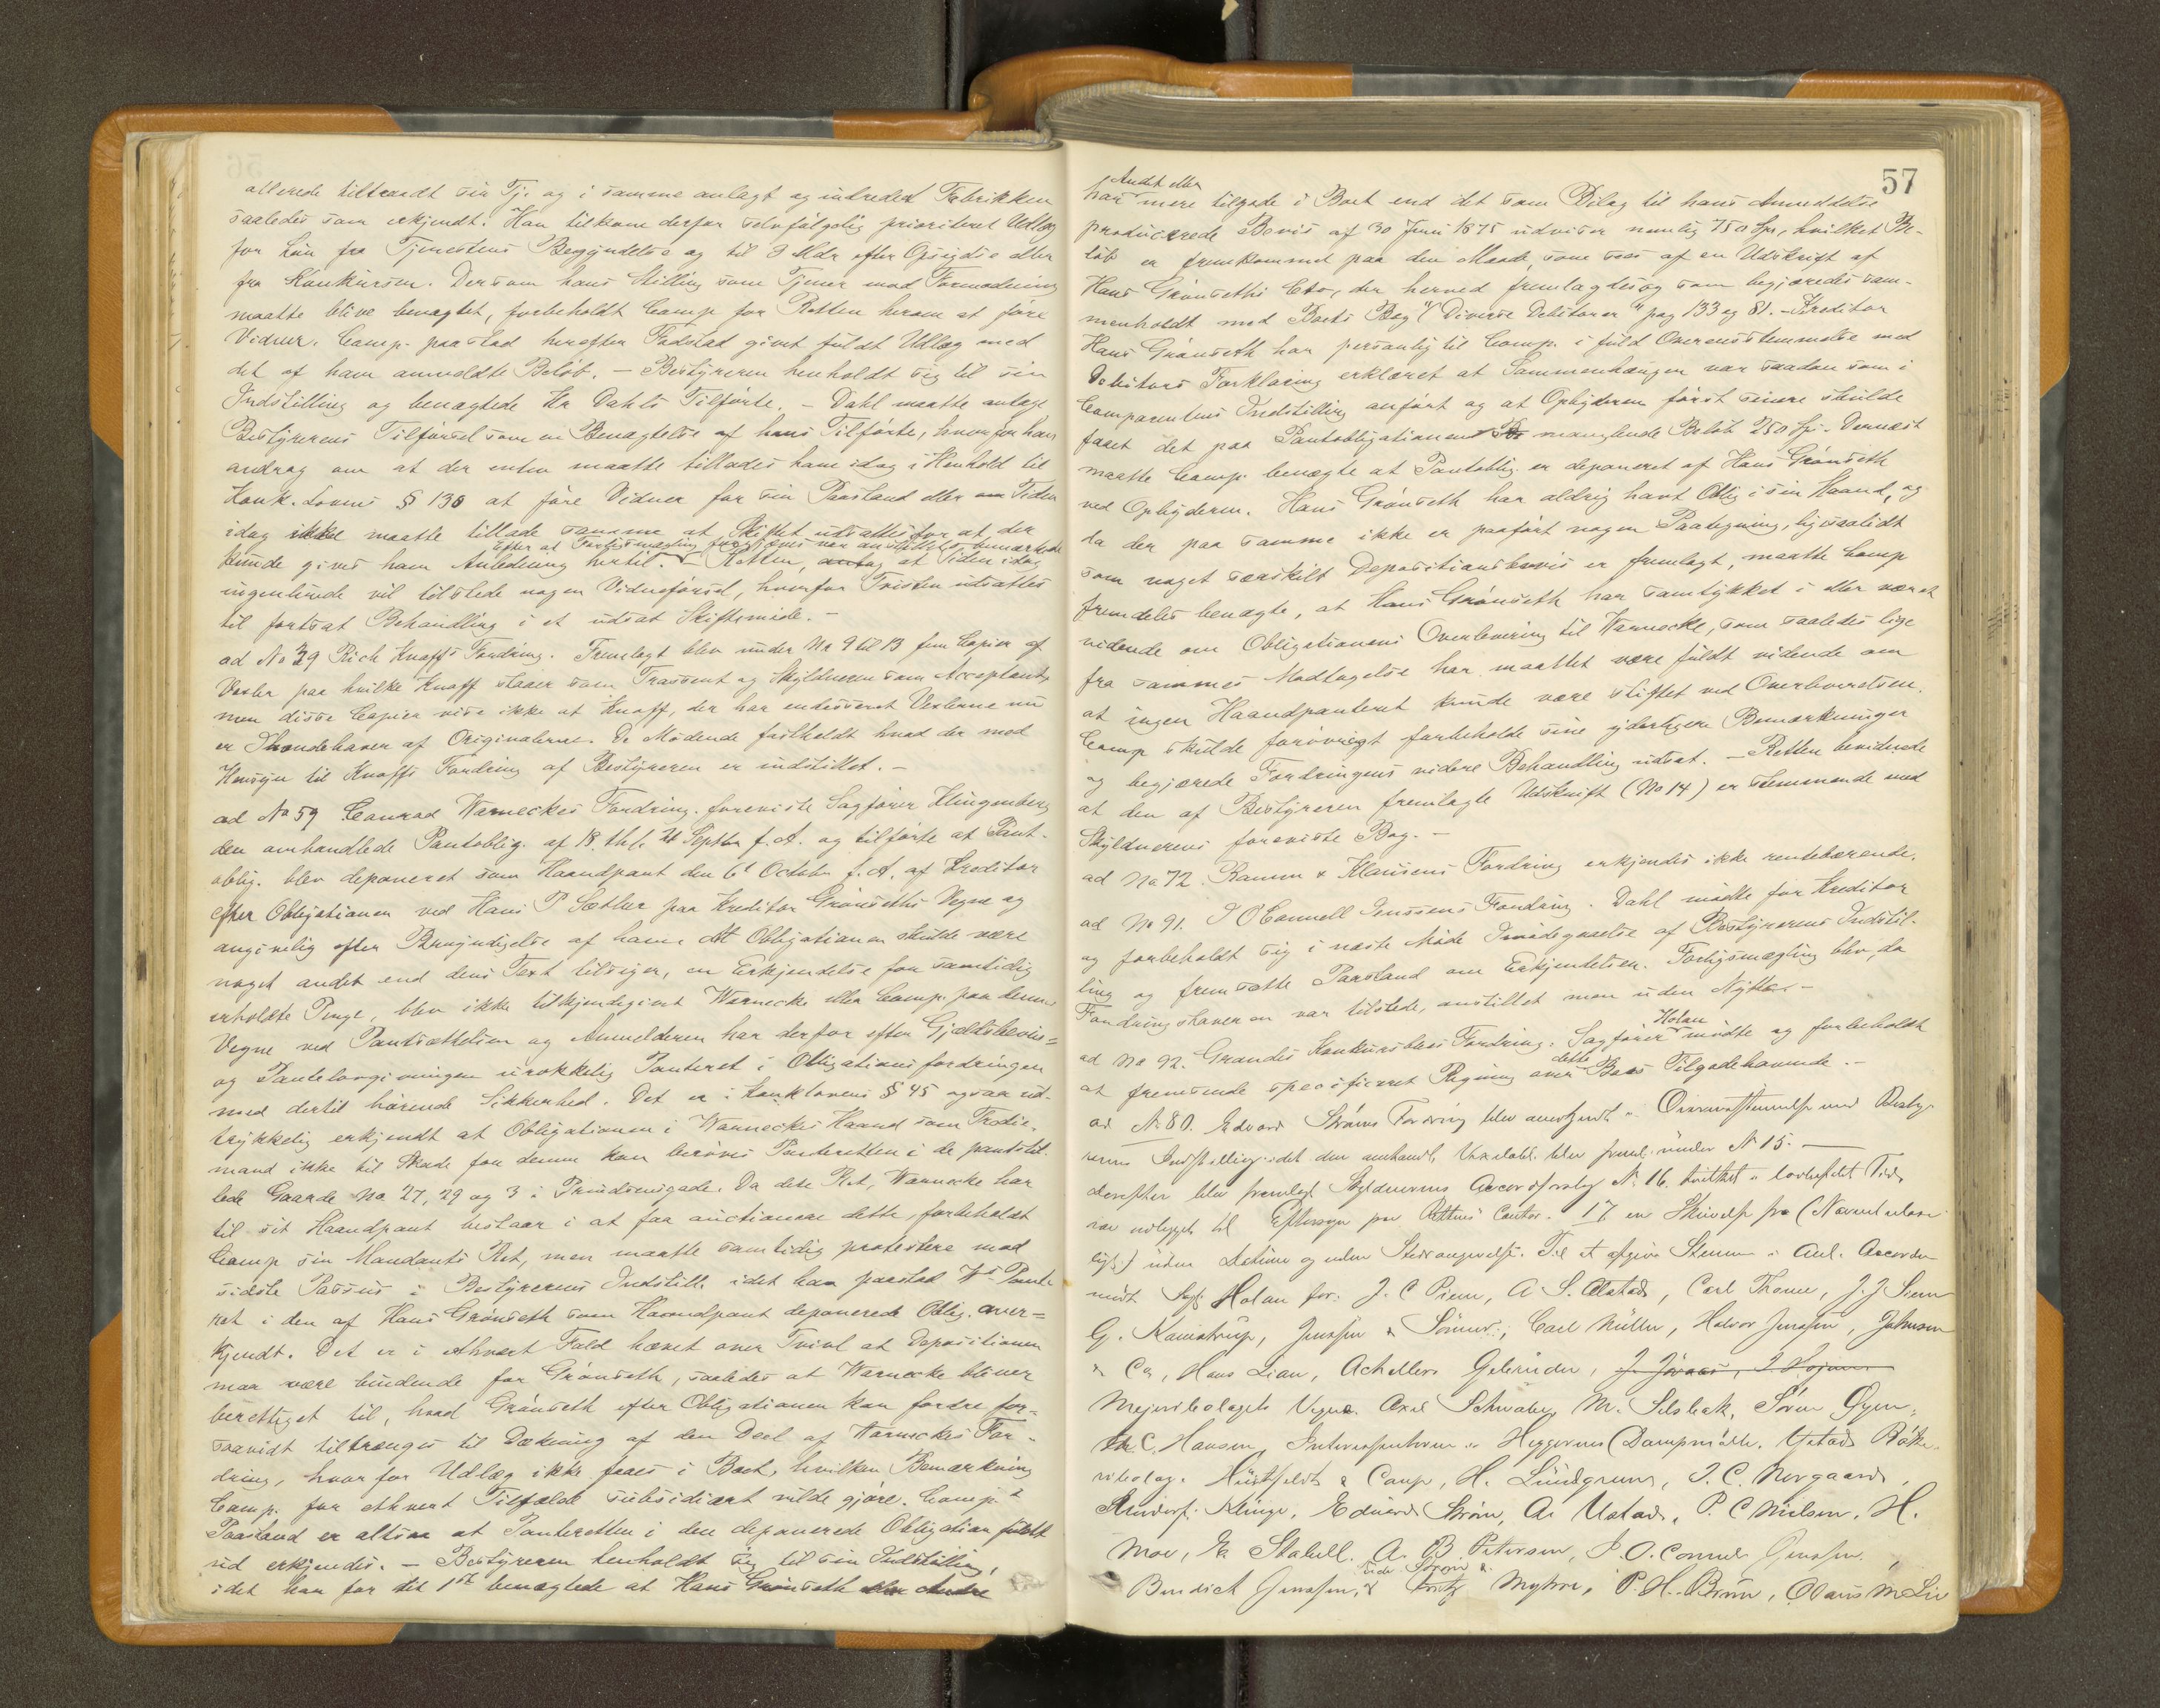 allerede tiltraadt sin Tj. og i samme anlagt og indredet Fabrikken
saaledes som erkjendt. Han tilkom derfor selvfølgelig prioriteret Udlæg
for Løn fra Tjenestens Begyndelse og til 3 Mdr efter Opsigelse eller
fra Konkursen. Dersom hans Stilling som Tjener mod Formodning
maatte blive benægtet, forbeholdt Comp. for Retten herom at føre
Vidner. Comp. paastod herefter Fadstad givet fuldt Udlæg med
det af ham anmeldte Beløb. – Bestyreren henholdt sig til sin
Indstilling og benægtede Hr Dahls Tilførte. – Dahl maatte antage
Bestyrerens Tilførsel som en Benægtelse af hans Tilførte, hvorfor han
androg om at der enten maatte tillades ham idag i Henhold til
Konk. Lovens § 130 at føre Vidner for sin Paastand eller om Tiden
idag ikke maatte tillade samme at Skiftet udsattes for at der
kunde gives ham Anledning hertil. – Retten, efter at Forligsmægling forgjæves var anstillet, bemærkede at Tiden idag
ingenlunde vil tilstede nogen Vidneførsel, hvorfor Tvisten udsattes
til fortsat Behandling i et udsat Skiftemøde. –
ad No 29 Rich Knoffs Fordring. Fremlagt blev under No 9 til 13 fem Copier af
Vexler paa hvilke Knoff staaer som Trassent og Skyldneren som Acceptant,
men disse Copier vise ikke at Knoff, der har endosseret Vexlerne nu
er Ihændehaver af Originalerne. De Mødende fastholdt hvad der med
Hensyn til Knoffs Fordring af Bestyreren er indstillet. –
ad No 59 Conrad Warneckes Fordring. foreviste Sagfører Klingenberg
den omhandlede Pantoblig. af 18. thl. 21 Septbr f. A. og tilførte at Pant-
oblig. blev deponeret som Haandpant den 6t October f. A. af Kreditor
efter Obligationen ved Hans P Sæther paa Kreditor Grønseths Vegne og
angivelig efter Bemyndigelse af ham. At Obligationen skulde være
noget andet end dens Text tilsiger, en Erkjendelse for samtidig
erholdte Penge, blev ikke tilkjendegivet Warnecke eller Comp. paa hennes
Vegne ved Pantsættelsen og Anmelderen har derfor efter Gjældsbevis=
og Pantelovgivningen urokkelig Panteret i Obligationsfordringen
med dertil hørende Sikkerhed. Det er i Konklovens § 45 ogsaa ud-
trykkelig erkjendt at Obligationen i Warneckes Haand som Tredie-
mand ikke til Skade for denne kan berøves Panteretten i de pantstil-
lede Gaarde No 27, 29 og 3 i Prindsensgade. Da dette Ret, Warnecke har
til sit Haandpant bestaar i at faa auctionere dette, forbeholdt
Comp sin Mandants Ret, men maatte samtidig protestere mod
sidste Passus i Bestyrerens Indstill. idet han paastod Ws Pante
ret i den af Hans Grønseth som Haandpant deponerede Oblig. aner=
kjendt. Det er i ethvert Fald hævet over Tvivl at Depositionen
maa være bindende for Grønseth, saaledes at Warnecke bliver
berettiget til, hvad Grønseth efter Obligationen kan fordre for-
saavidt tiltrænges til Dækning af den Deel af Warneckes For-
dring, hvorfor Udlæg ikke faaes i Boet, hvilken Bemærkning
Comp. for ethvert Tilfælde subsidiært vilde gjøre. Comp.s
Paastand er altsaa at Panteretten i den deponerede Obligation fuldt
ud erkjendes. – Bestyreren henholdt sig til sin Indstilling,
idet han for det 1ste benægtede at Hans Grønseth eller Andre
57
har Andet eller mere tilgode i Boet end det som Bilag til hans Anmeldelse
producerede Bevis af 30 Juni 1875 udviser nemlig 750 Spd, hvilket Be-
løb er fremkommet paa den Maade, som sees af en Udskrift af
Hans Grønseths Cto, der herved fremlagdes og som begjæredes sam-
menholdt med Boets Bog "Diverse Debitorer" pag 133 og 81. – Kreditor
Hans Grønseth har personlig til Comp. i fuld Overensstemmelse med
Debitors Forklaring erklæret at Sammenhængen var saadan som i
Comparentens Indstilling anført og at Ophyderen først senere skulde
faaet det paa Pantobligationen manglende Beløb 250 Spd. Dernæst
maatte Comp. benægte at Pantoblig. er deponeret af Hans Grønseth
ved Ophyderen. Hans Grønseth har aldrig havt Oblig i sin Haand, og
da der paa samme ikke er paaført nogen Paategning, ligesaalidt
som noget særskilt Depositionsbevis er fremlagt, maatte Comp
fremdeles benægte, at Hans Grønseth har samtykket i eller været
vidende om Obligationens Overlevering til Warnecke, som saaledes lige
fra sammes Modtagelse har maattet være fuldt vidende om
at ingen Haandpanteret kunde være stiftet ved Overleverelsen.
Comp skulde forøvrigt forbeholde sine yderligere Bemærkninger
og begjærede Fordringens videre Behandling udsat. – Retten bevidnede
at den af Bestyreren fremlagte Udskrift (No 14) er stemmende med
Skyldnerens foreviste Bog. –
ad No 72. Ramm & Klausens Fordring erkjendes ikke rentebærende.
ad No 91. I O'Connell Jenssens Fordring. Dahl mødte for Kreditor
og forbeholdt sig i næste Møde Imødegaaelse af Bestyrerens Indstil-
ling og fremsatte Paastand om Erkjendelsen. Forligsmægling blev, da
Fordringshaveren var tilstede, anstillet men uden Nytte. –
ad No 92. Grandes Konkursboes Fordring. Sagfører Holan mødte og forbeholdt
at fremsende specificeret Regning over dette Boes Tilgodehavende. –
ad No 80. Edvard Strøms Fordring blev anerkjendt i Overensstemmelse med Besty-
rerens Indstilling idet den omhandl. Vexelobl. blev freml. under No 15. –
derefter blev fremlagt Skyldnerens Accordforslag No 16. hvilket i lovbefalet Tid
var udlagt til Eftersyn paa Rettens Contor. 17 en Skrivelse fra (Navnet ulæse
ligt) uden Datum og uden Stedsangivelse. Til at afgive Stemme i Anl. Accorden
mødt Sagf. Holan for: J. C Piene, A S. Alstad, Carl Thone, J. J Siem
G. Kamstrup, Jenssen & Sønner, Carl Müller, Halvor Jenssen, Johnsen
& Co, Hans Lian, Achelles Gebrüder,
Meieribolagets Vegne. Axel Schwabe, M. Selsbak, Søren Gyen,
C. Hansen, Interessenterne i Heggernes Dampmølle. Ystads
ribolag. Huitfeldt & Comp, H. Lundgreens, I. C. Norgaard,
Klinge, Edvard Strøm, A. Ustad, P. C Nielsen, H.
Moe, Stabell. A. B. Petersen, I. O. Connel Jenssen.
Bendict Jenssen, & Fritz Myhre, P. H. Brun, Olaus M Lie